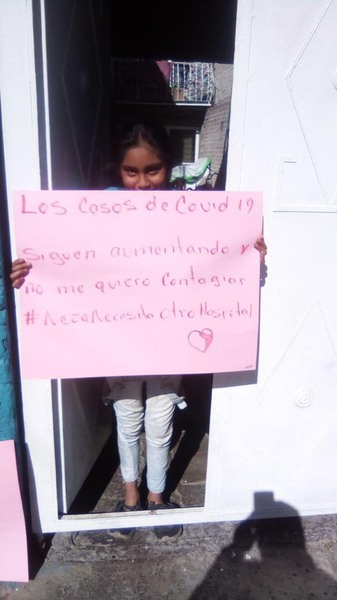 Los Casos de Covid 19
siguen aumentando y
no me quiero Contagiar
#NezaNecesita otro Hospital